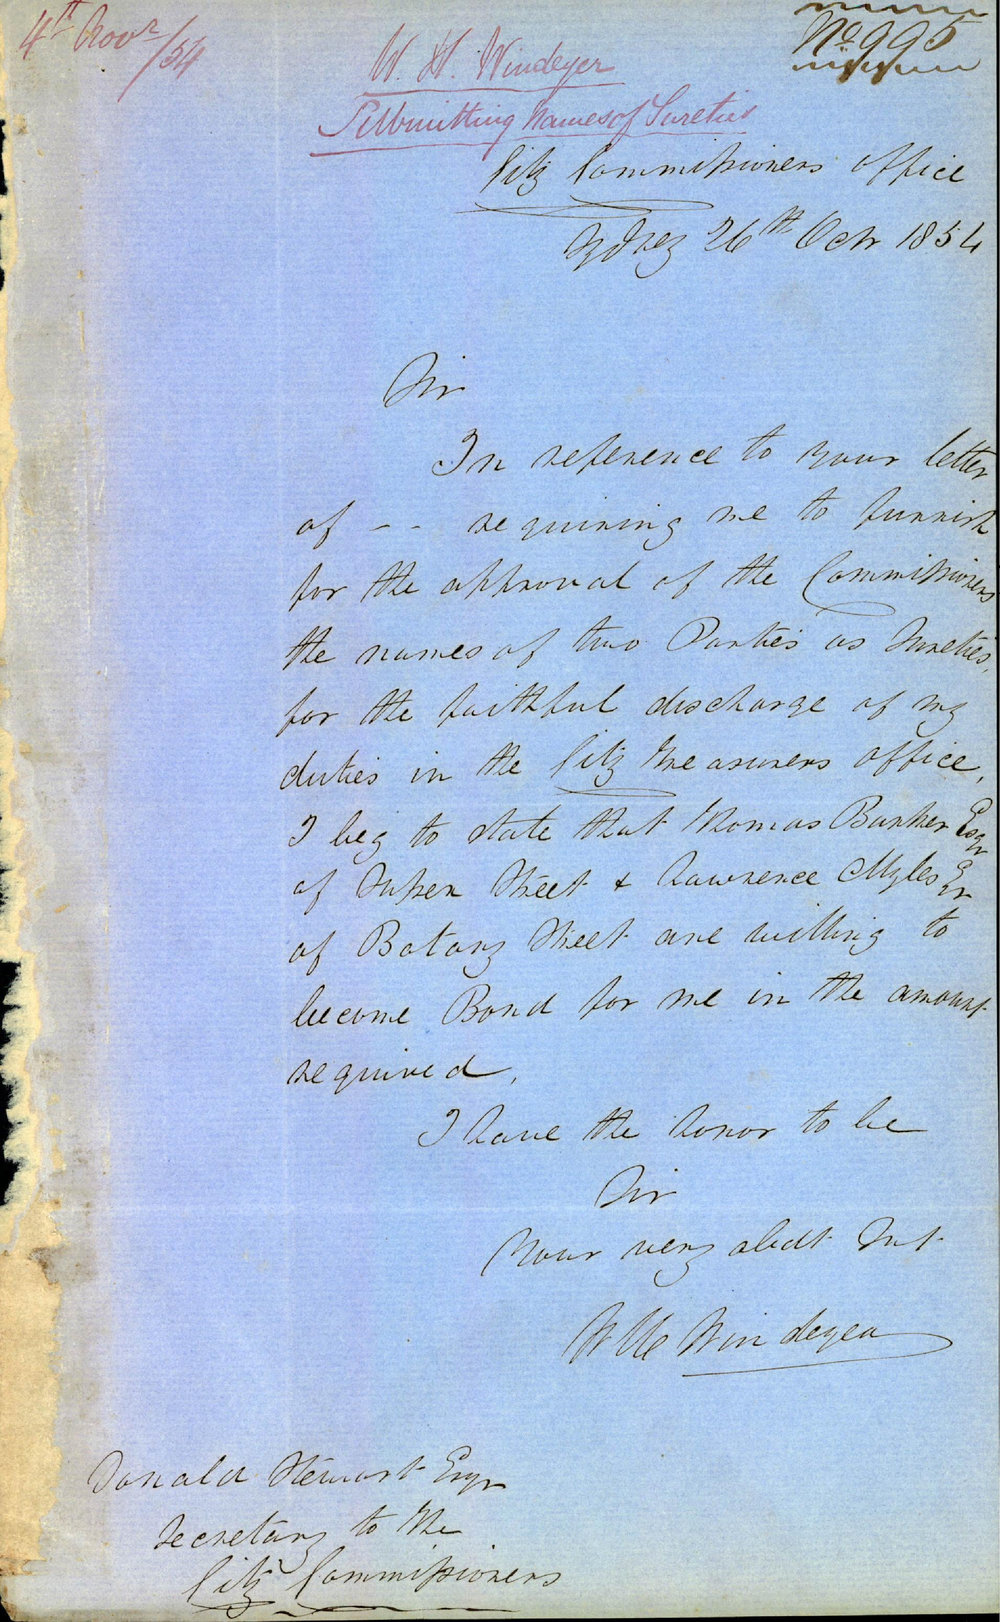 4th Novr /54
No 995
W. H. Windeyer
Submitting Names of Sureties
City Commissioners office
Sydney 26th Octr 1854
Sir
In reference to your letter
of - - requiring me to furnish
for the approval of the Commissioners
the names of two Parties as Sureties,
for the faithful discharge of my
duties in the City Treasurers office,
I beg to state that Thomas Barker Esqr
of Sussex Street & Lawrence Myles Esqr
of Botany Street are willing to
become Bond for me in the amount
required.
I have the honor to be
Sir
Your very obedt Svt
W H Windeyer
Donald Stewart Esqr
Secretary to the
City Commissioners